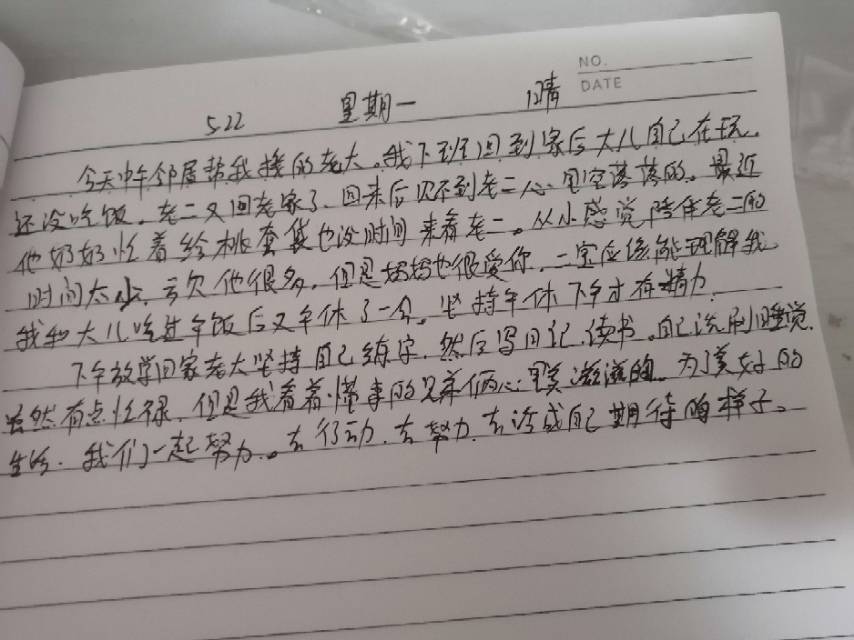 NO.
DATE
5.22 星期一 晴
今天中午邻居帮我接的老大。我下班回到家后大儿自己在玩。
还没吃饭。老二又回老家了、回来后见不到老二心里空落落的。最近
他奶奶忙着给桃套袋也没时间来看老二。从小感觉陪伴老二的
时间太少、亏欠他很多。但是妈妈也很爱你、二宝应该能理解我
我和大儿吃过午饭后又午休了一会。坚持午休下午才有精力.
下午放学回家老大坚持自己练字、然后写日记、读书。自己洗刷睡觉.
虽然有点忙碌、但是我看着懂事的兄弟俩心里美滋滋的 为了美好的
生活. 我们一起努力。去行动、去努力、去活成自己期待的样子。